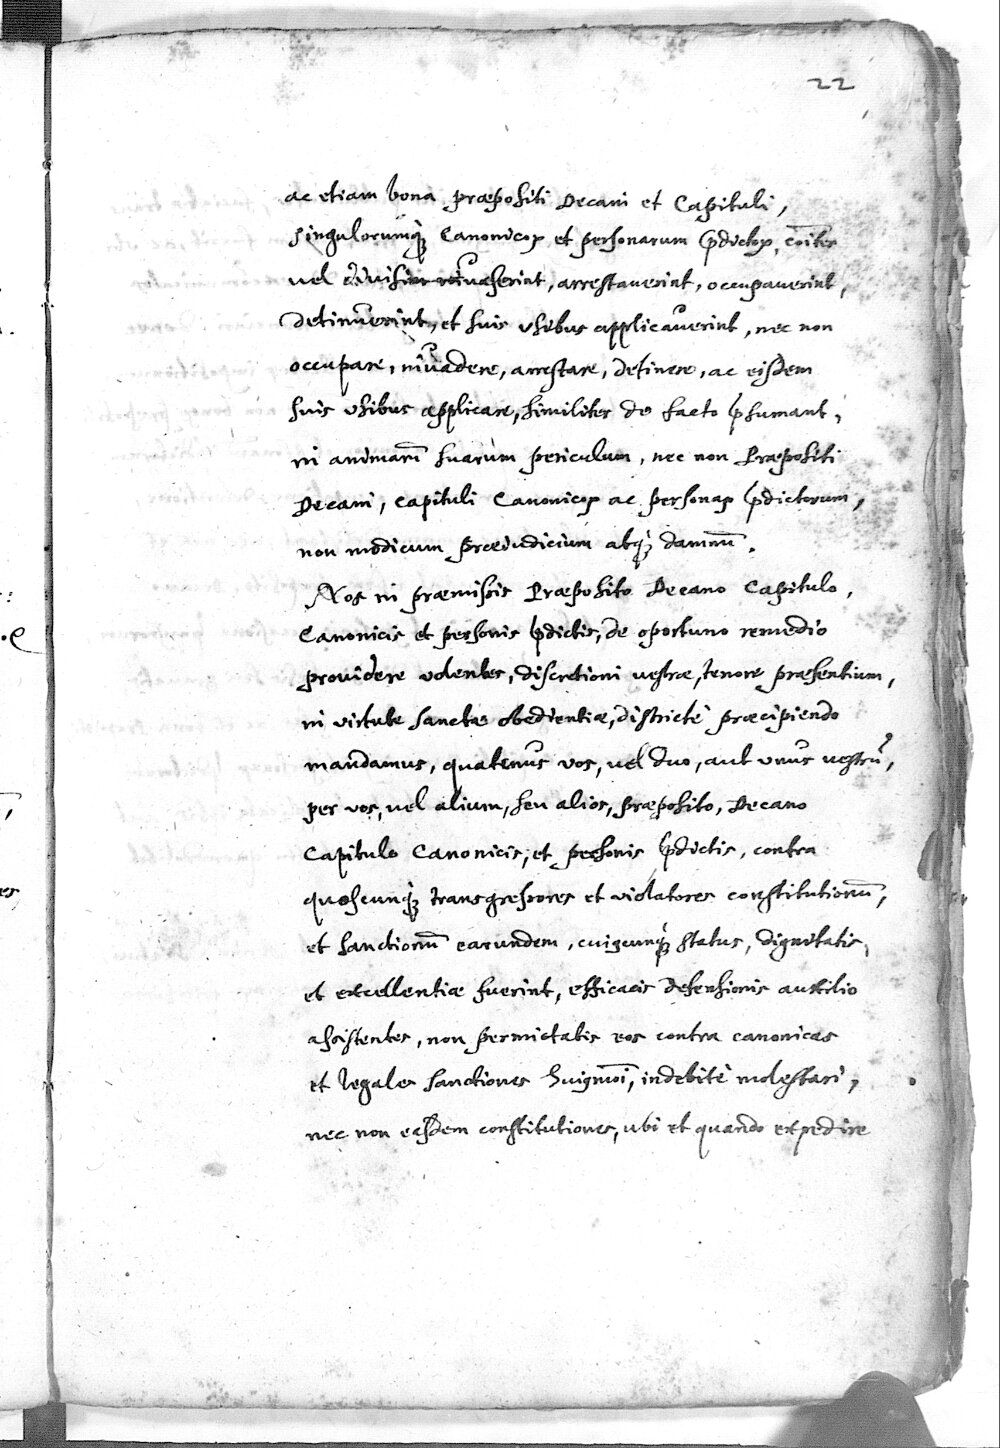 22
ac etiam bona præpositi Decani et Capituli,
singulorumq̃ Canonicoꝝ et personarum p̃dictoꝝ, cõiter
vel divisim invaserint, arrestaverint, occupaverint,
detinuerint, et suis usibus applicaverint, nec non
occupare, invadere, arrestare, detinere, ac eisdem
suis usibus applicare, similiter de facto p̃sumant,
in animarũ suarum periculum, nec non Præpositi
Decani, Capituli Canonicoꝝ ac personaꝝ p̃dictorum,
non modicum præiudicium atq̃ damnũ.
Nos in præmissis Præposito Decano Capitulo,
Canonicis et personis p̃dictis, de oportuno remedio
providere volentes, discretioni vestræ, tenore præsentium,
in virtute sanctæ obedientiæ, districtè præcipiendo
mandamus, quatenus vos, vel duo, aut unus vestrũ,
per vos, vel alium, seu alios, præposito, Decano
Capitulo Canonicis, et personis p̃dictis, contra
quoscunq̃ transgressores et violatores constitutionũ,
et sanctionũ earundem, cuiscunq̃ status, dignitatis,
et excellentiæ fuerint, efficacis defensionis auxilio
assistentes, non permictatis eos contra canonicas
et legales sanctiones huigmõi, indebitè molestari,
nec non easdem constitutiones, ubi et quando expedire